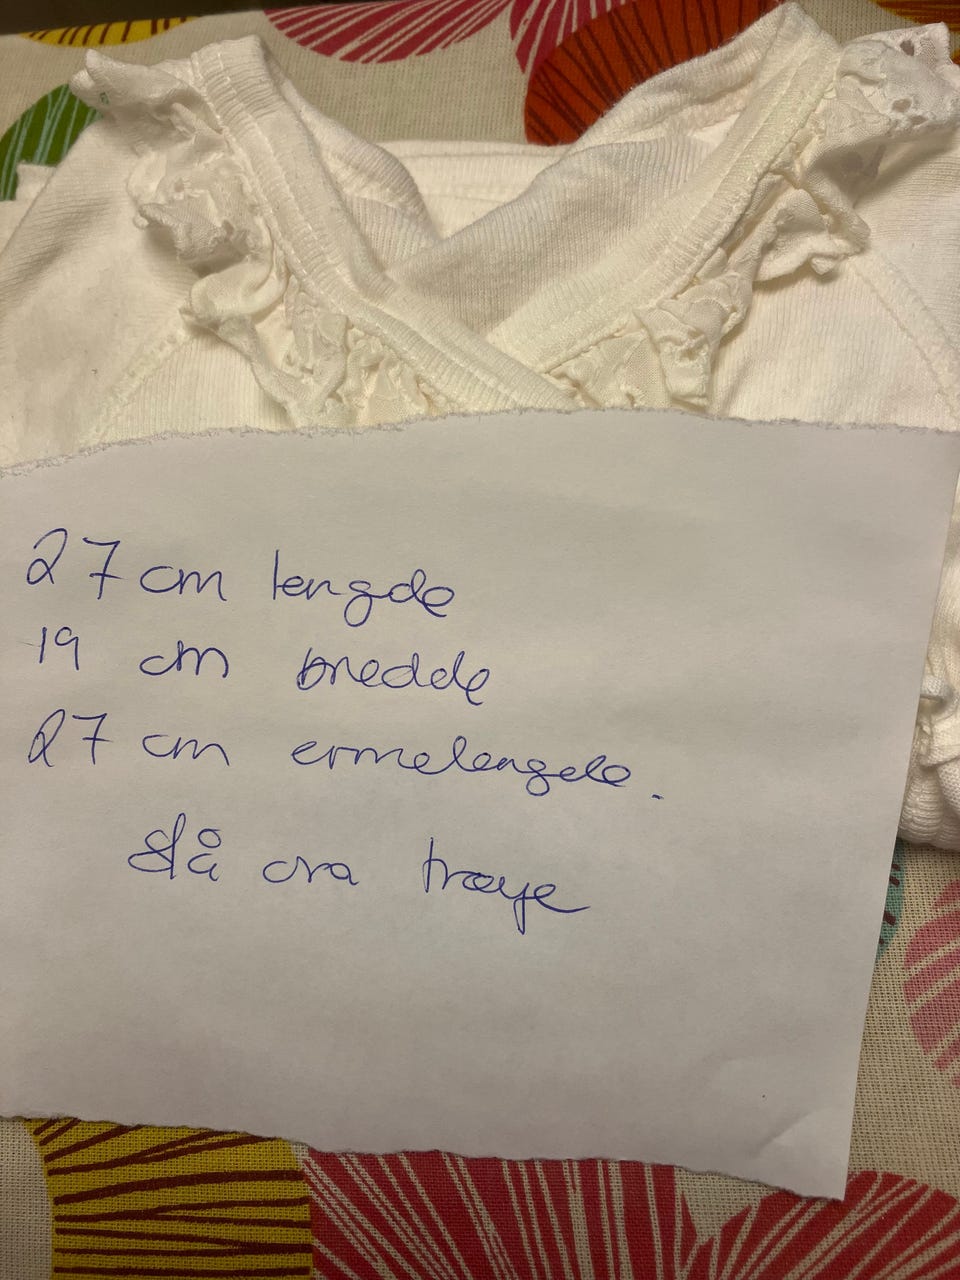 27 cm lengde
19 cm bredde
27 cm ermelengde.
slå ora trøye